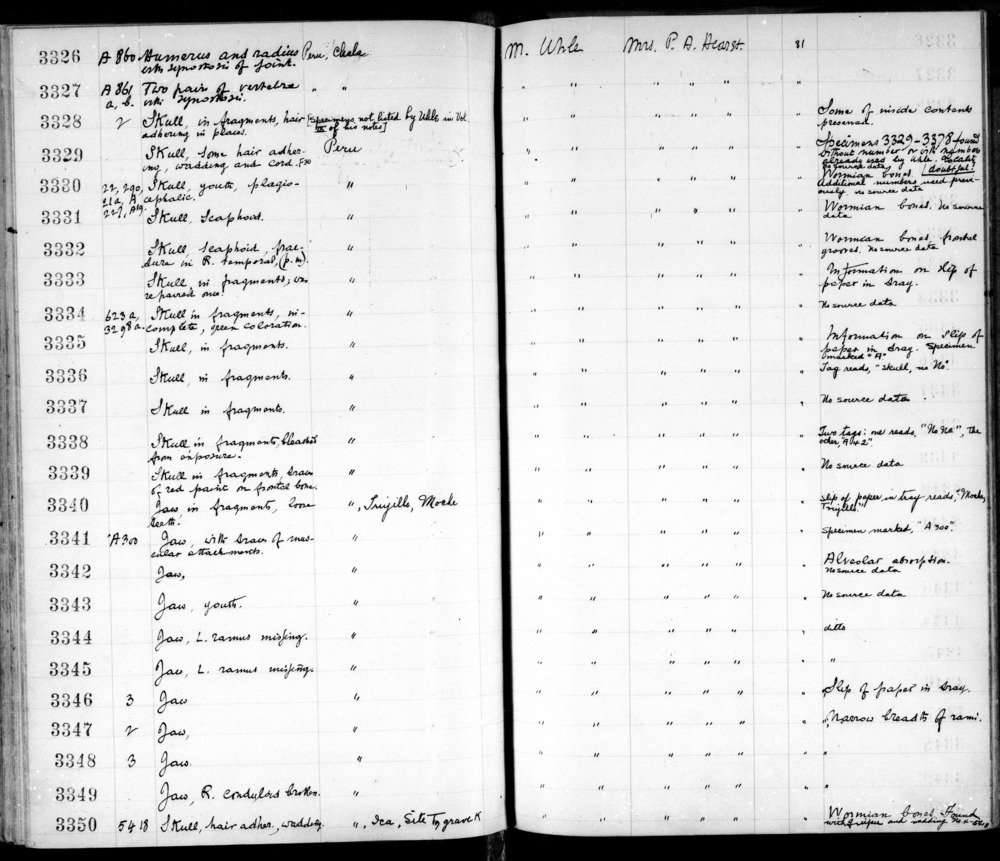 3326 A 860 Humerus and radius Peru, Chala M. Uhle Mrs. P. A. Hearst. 81
with synostosis of joint.
3327 A 861 Two pairs of vertebra " " " " " " "
a, b. with synostosis.
3328 2 Skull, in fragments, hair [Specimens not listed by Uhle in Vol " " " " " Some of inside contents
adhering in places. III of his notes] preserved.
3329 Skull, some hair adher- Peru " " " " " " Specimens 3329-3378 found
ing, wadding and cord. without number or with numbers
already used by Uhle. Locality
no source data doubtful.
3330 22, 290, Skull, youth, plagio- " " " " " " " Wormian bones.
21a, A cephalic. Additional numbers used previ-
221, A19. ously. no source data
3331 Skull, Scaphoid. " " " " " " " Wormian bones. No source
data
3332 Skull, scaphoid, frac- " " " " " " " Wormian bones, frontal
ture in R. temporal, (p.m). grooves. No source data
3333 Skull, in fragments; was " " " " " " " Information on slip of
repaired once. paper in tray.
3334 623a, Skull in fragments, in- " " " " " " " No source data
3298a. complete, green coloration.
3335 Skull, in fragments. " " " " " " " Information on slip of
paper in tray. Specimen
marked "A"
3336 Skull, in fragments. " " " " " " " Tag reads, "Skull, no No."
3337 Skull in fragments. " " " " " " " No source data
3338 Skull in fragments, bleached " " " " " " " Two tags: one reads, "No No", the
from exposure. other, "A42".
3339 Skull in fragments, traces " " " " " " " No source data
of red paint on frontal bone.
3340 Jaw, in fragments, loose ", Trujillo, Moche " " " " " " Slip of paper in tray reads, "Moche,
teeth. Trujillo"
3341 "A300 Jaw, with traces of mus- " " " " " " " Specimen marked, "A300".
cular attachments.
3342 Jaw, " " " " " " " Alveolar absorption.
No source data
3343 Jaw, youth. " " " " " " " No source data
3344 Jaw, L. ramus missing. " " " " " " " ditto
3345 Jaw, L. ramus missing. " " " " " " " "
3346 3 Jaw " " " " " " " Slip of paper in tray.
3347 2 Jaw, " " " " " " " Narrow breadth of rami.
3348 3 Jaw. " " " " " " " "
3349 Jaw, R. condyloid broken. " " " " " " " "
3350 5418 Skull, hair adher., wadding ", Ica, Site T, grave K " " " " " Wormian bones. Found
with and wadding